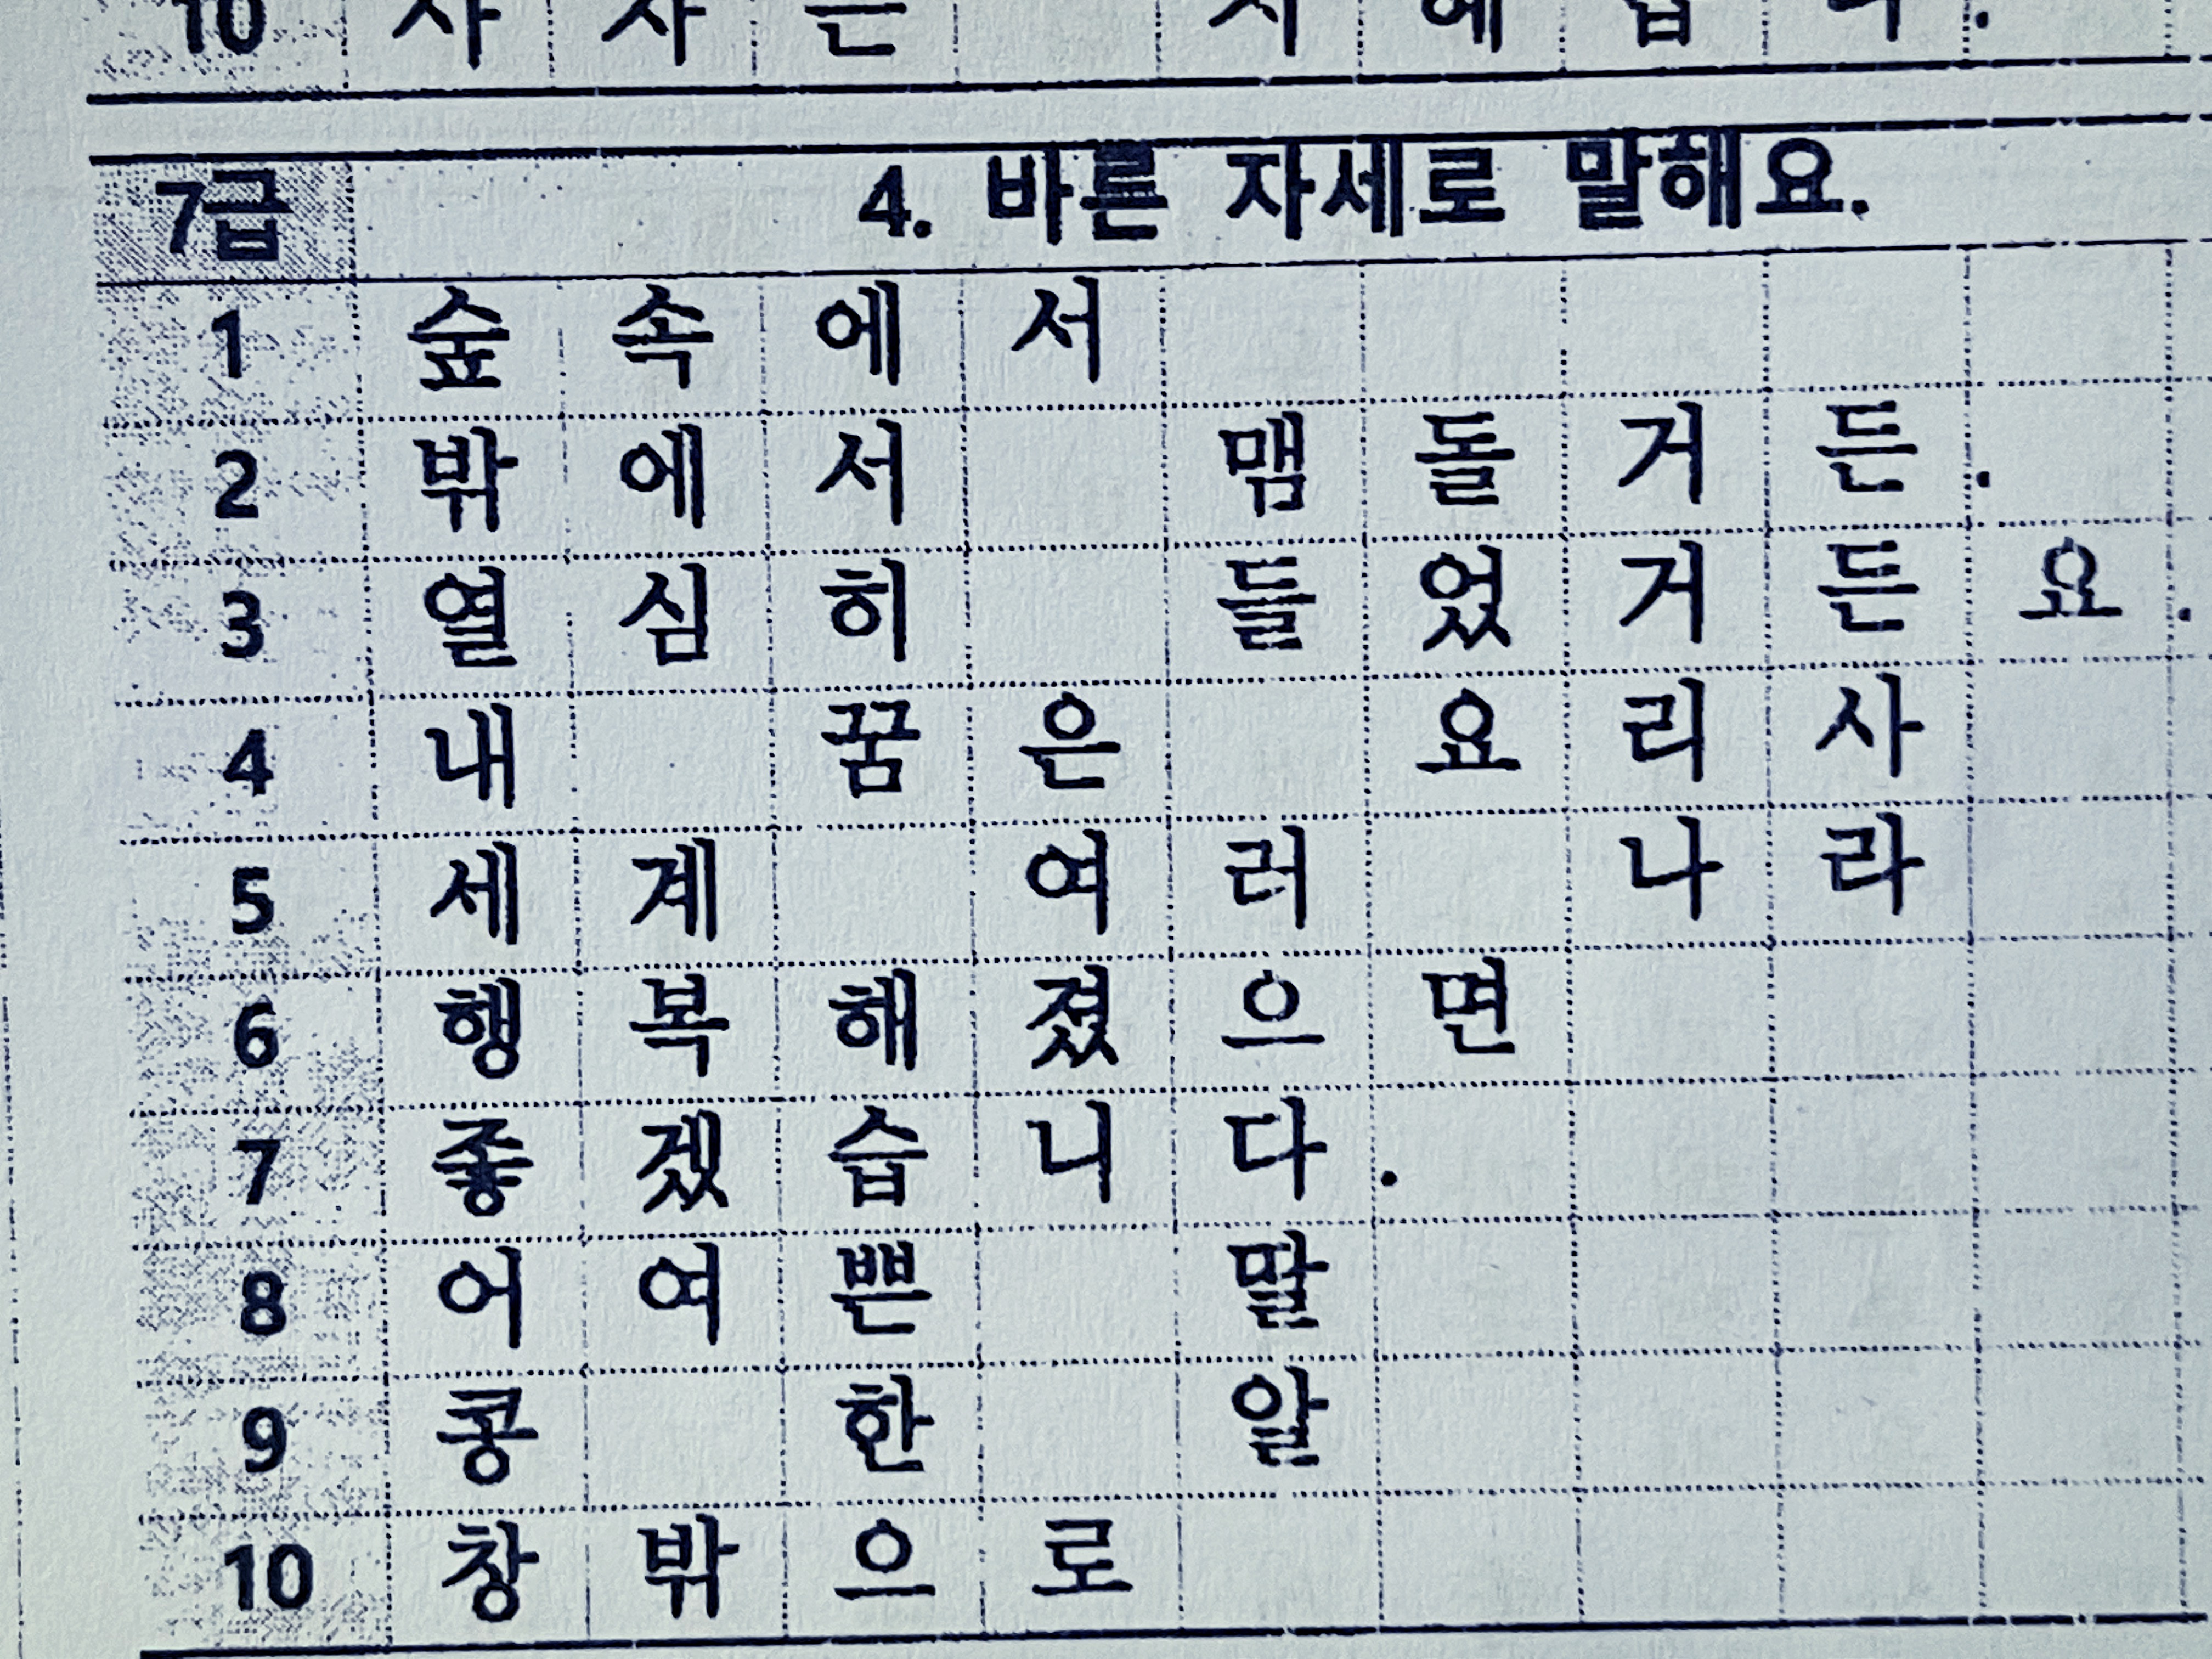 10
7급 4. 바른 자세로 말해요.
1 숲속에서
2 밖에서 맴돌거든.
3 열심히 들었거든요.
4 내 꿈은 요리사
5 세계 여러 나라
6 행복해졌으면
7 좋겠습니다.
8 어여쁜 말
9 콩 한 알
10 창밖으로